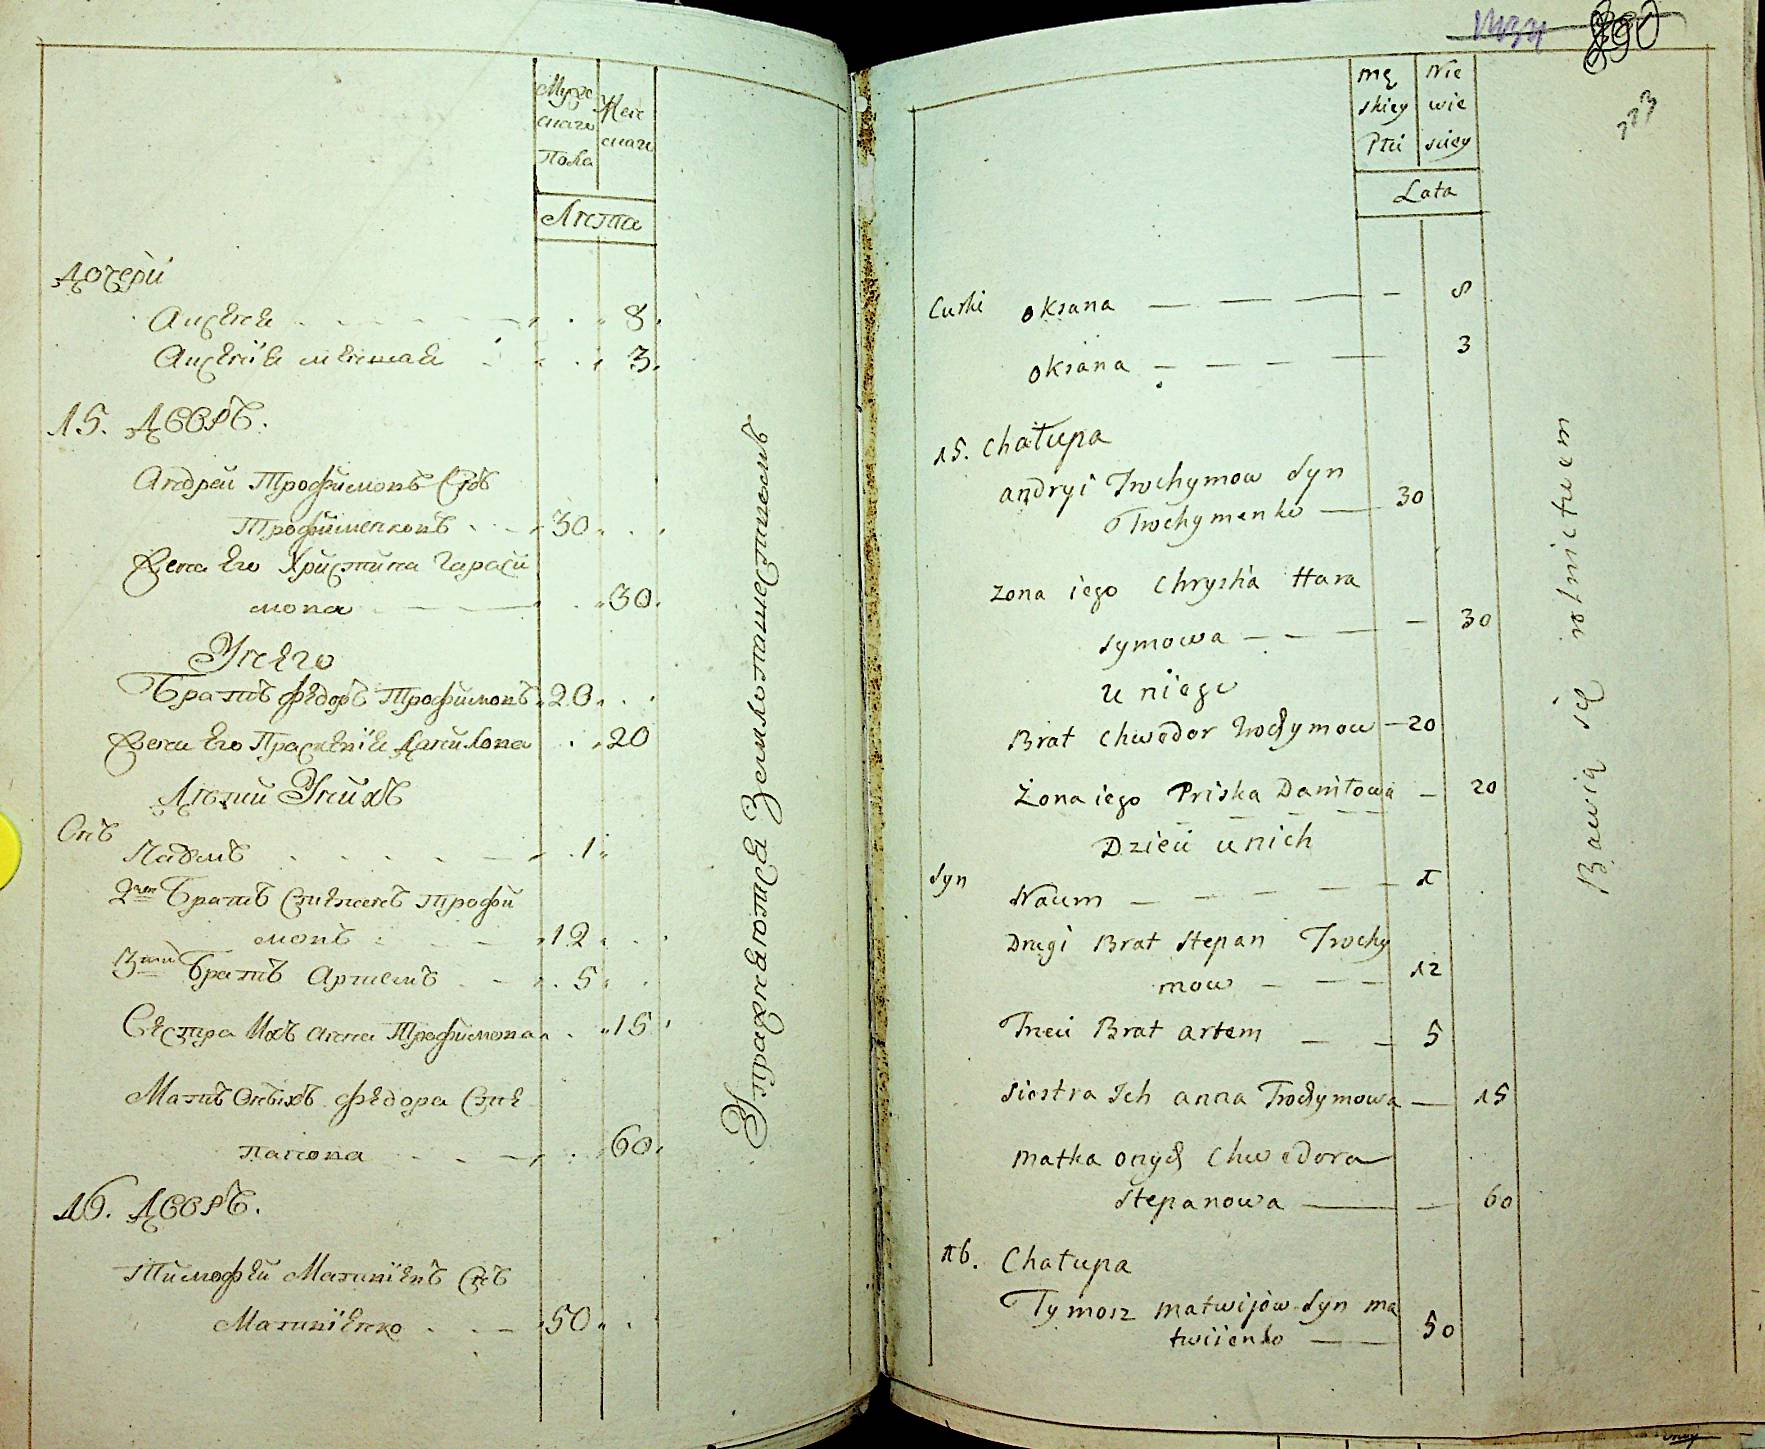 Мужескаго Пола
Женскаго
Лѣта
Дочери
Аѯенѣя 8
Аѯенїя меншая 3
15. Дворъ.
Андрей Трофимовъ Снъ
Трофименковъ 30
Жена Его Христина Гараси
мова 30
У него
Братъ Федоръ Трофимовъ 20
Жена Его Прасковїя Данилова 20
Дѣти У нихъ
Снъ
Наумъ 1
2й Братъ Степанъ Трофи
мовъ 12
3й Братъ Артемъ 5
Сестра Ихъ Анна Трофимова 15
Мать Оныхъ Федора Сте
панова 60
16. Дворъ.
Тимофей Матвїевъ Снъ
Матвїенко 50
Упражняются Землопашествомъ
890
mę
skiey
Płci
Nie
wie
sciey
Lata
Curki oksana 8
oksana 3
15. chałupa
andryi Trochymow Syn
Trochymenko 30
zona iego Chrystia Hara
symowa 30
U niego
Brat Chwedor Trochymow 20
żona iego Priska Daniłowa 20
Dzieci u nich
Syn
Naum 1
Drugi Brat Stepan Trochy
mow 12
Trzeci Brat artem 5
siostra Ich anna Trochymowa 15
matka onych Chwedora
Stepanowa 60
16. Chałupa
Tymosz matwijów Syn ma
twiienko 50
Bawią się rolnictwem